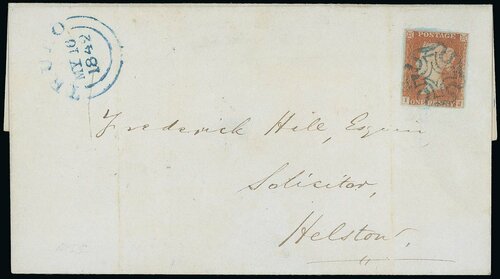 TRURO
MY 16
1842
POSTAGE
ONE PENNY
Frederick Hill, Esquire
Solicitor,
Helston,